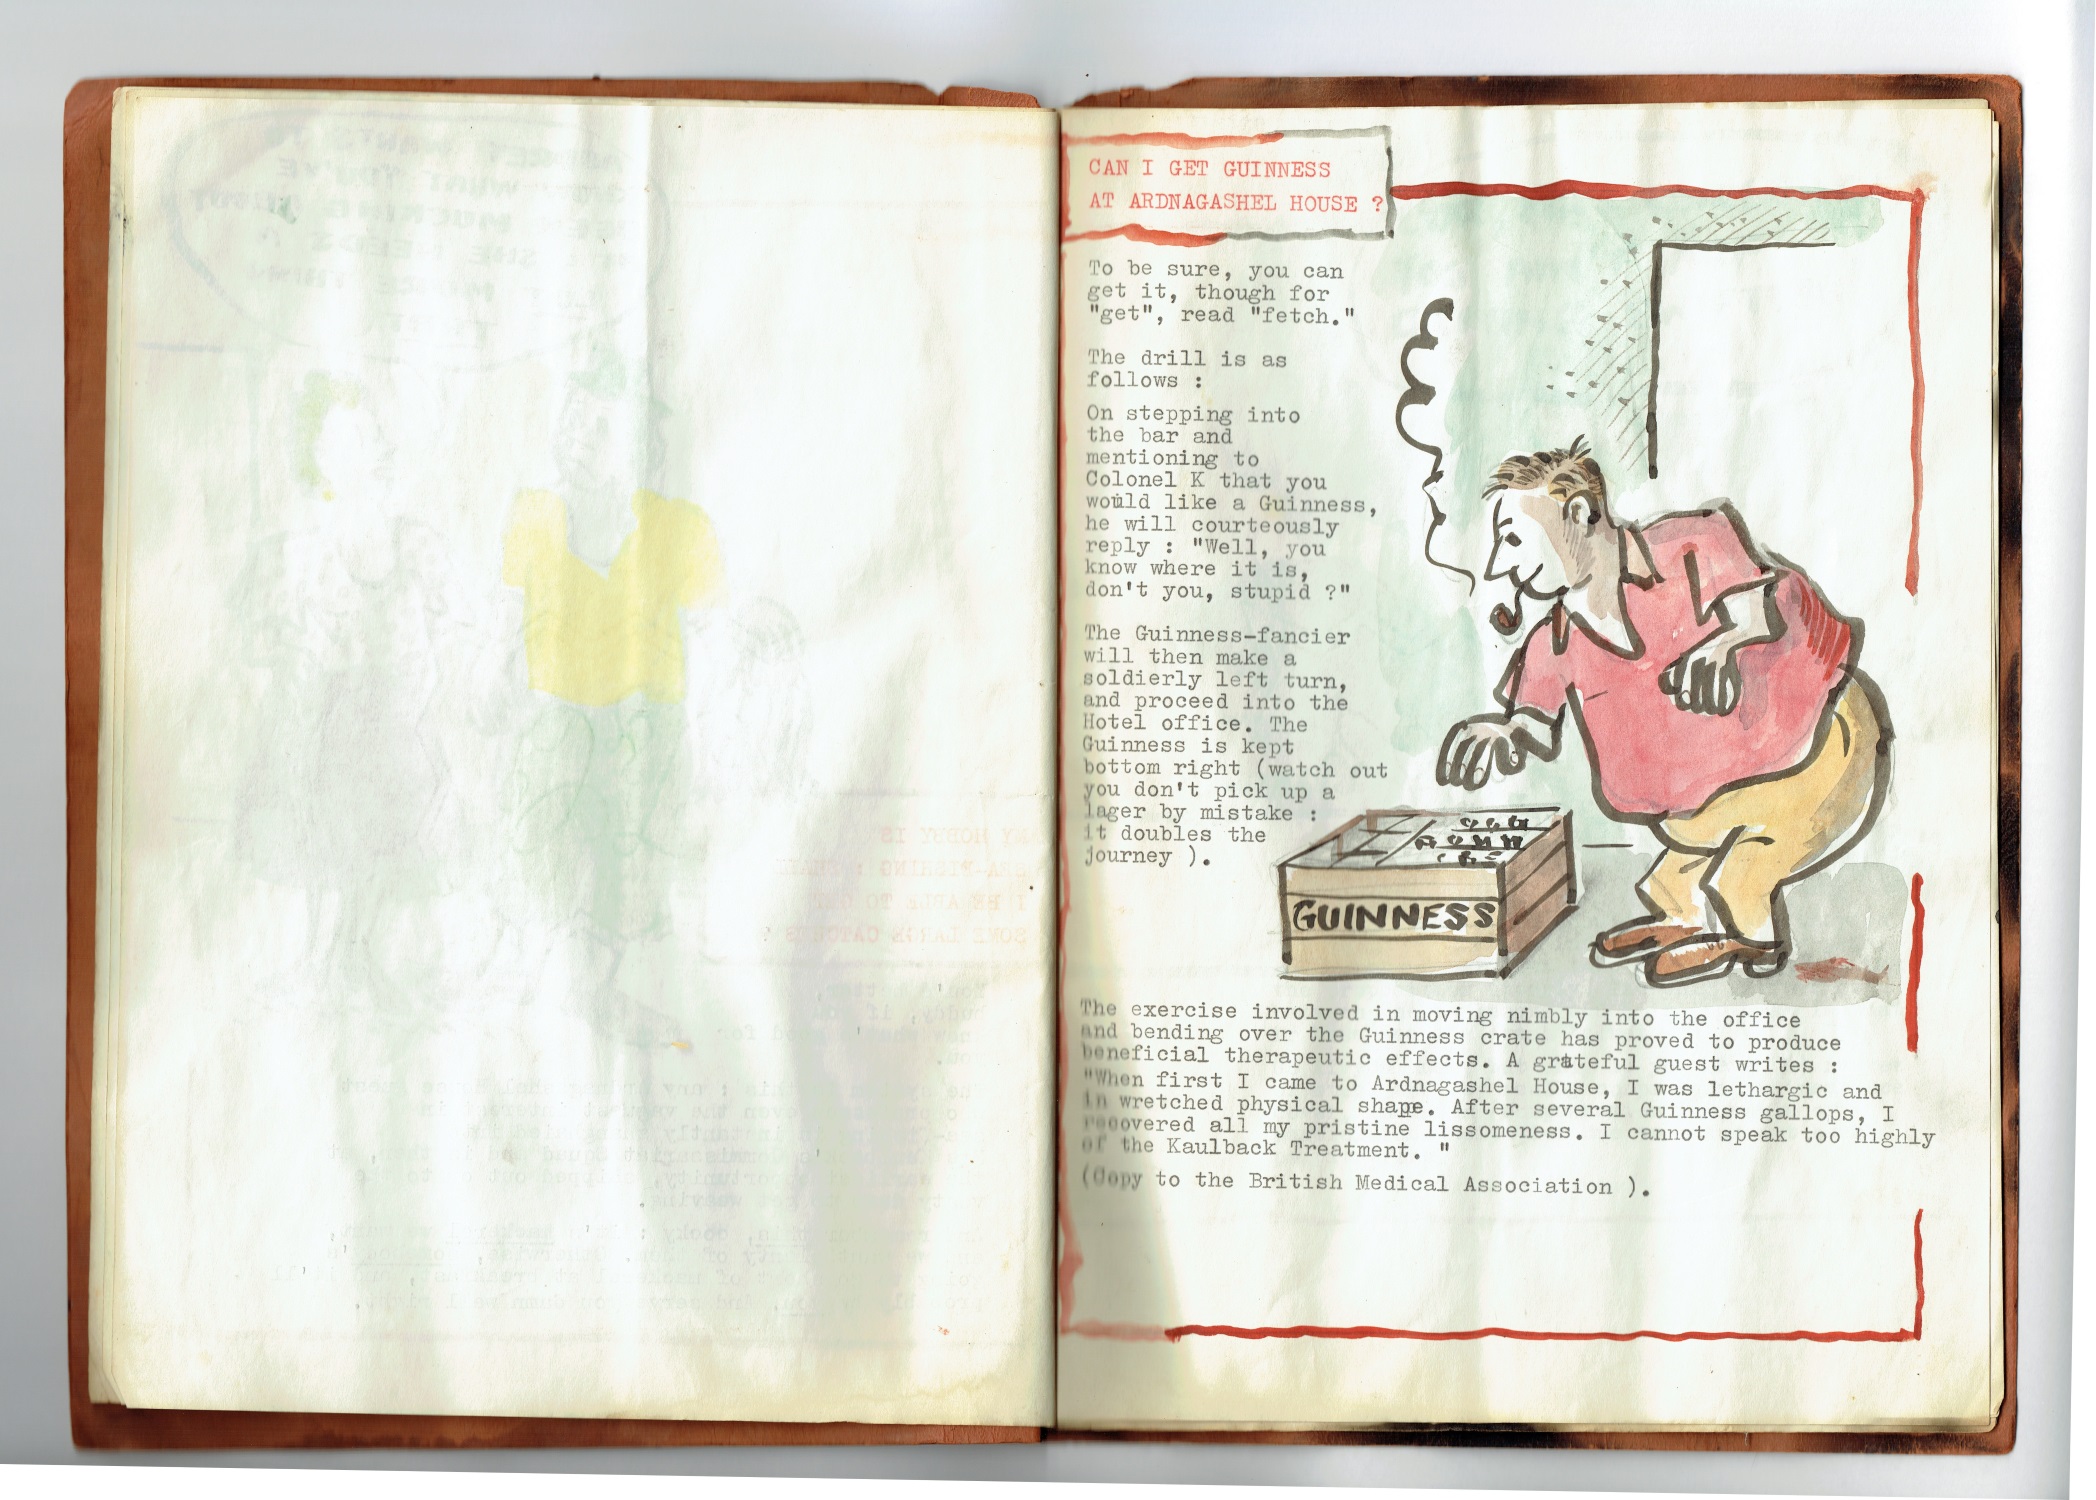 CAN I GET GUINNESS
AT ARDNAGASHEL HOUSE ?
To be sure, you can
get it, though for
"get", read "fetch."
The drill is as
follows :
On stepping into
the bar and
mentioning to
Colonel K that you
would like a Guinness,
he will courteously
reply : "Well, you
know where it is,
don't you, stupid ?"
The Guinness-fancier
will then make a
soldierly left turn,
and proceed into the
Hotel office. The
Guinness is kept
bottom right (watch out
you don't pick up a
lager by mistake :
it doubles the
journey ).
GUINNESS
The exercise involved in moving nimbly into the office
and bending over the Guinness crate has proved to produce
beneficial therapeutic effects. A grateful guest writes :
"When first I came to Ardnagashel House, I was lethargic and
in wretched physical shape. After several Guinness gallops, I
recovered all my pristine lissomeness. I cannot speak too highly
of the Kaulback Treatment. "
(Copy to the British Medical Association ).